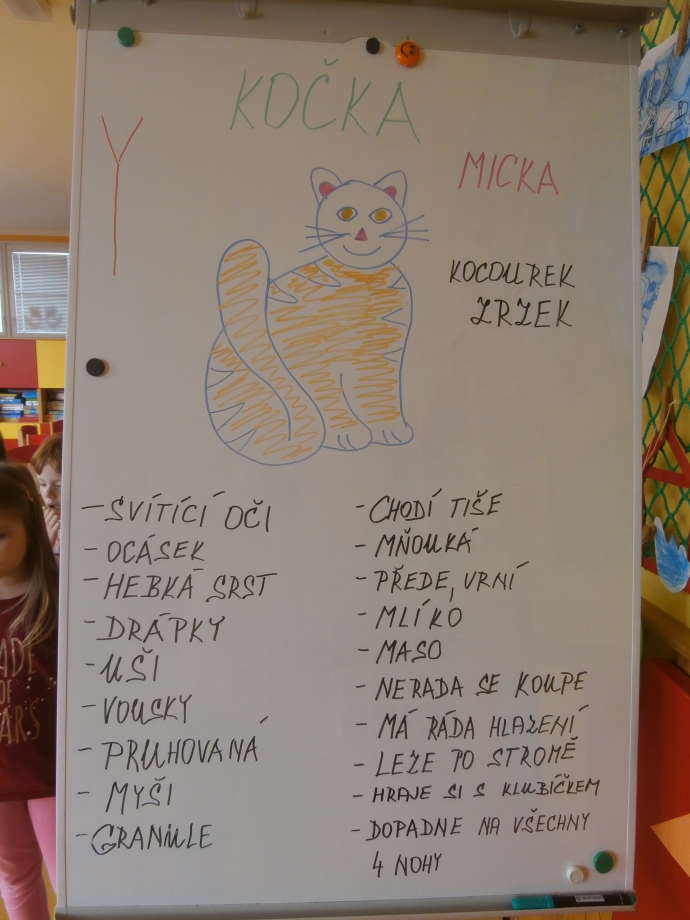 KOČKA
Y
MICKA
KOCOUREK
ZRZEK
- SVÍTÍCÍ OČI
- OCÁSEK
- HEBKÁ SRST
- DRÁPKY
- UŠI
- VOUSKY
- PRUHOVANÁ
- MYŠI
- GRANULE
- CHODÍ TIŠE
- MŇOUKÁ
- PŘEDE, VRNÍ
- MLÍKO
- MASO
- NERADA SE KOUPE
- MÁ RÁDA HLAZENÍ
- LEZE PO STROMĚ
- HRAJE SI S KLUBÍČKEM
- DOPADNE NA VŠECHNY
4 NOHY
OF